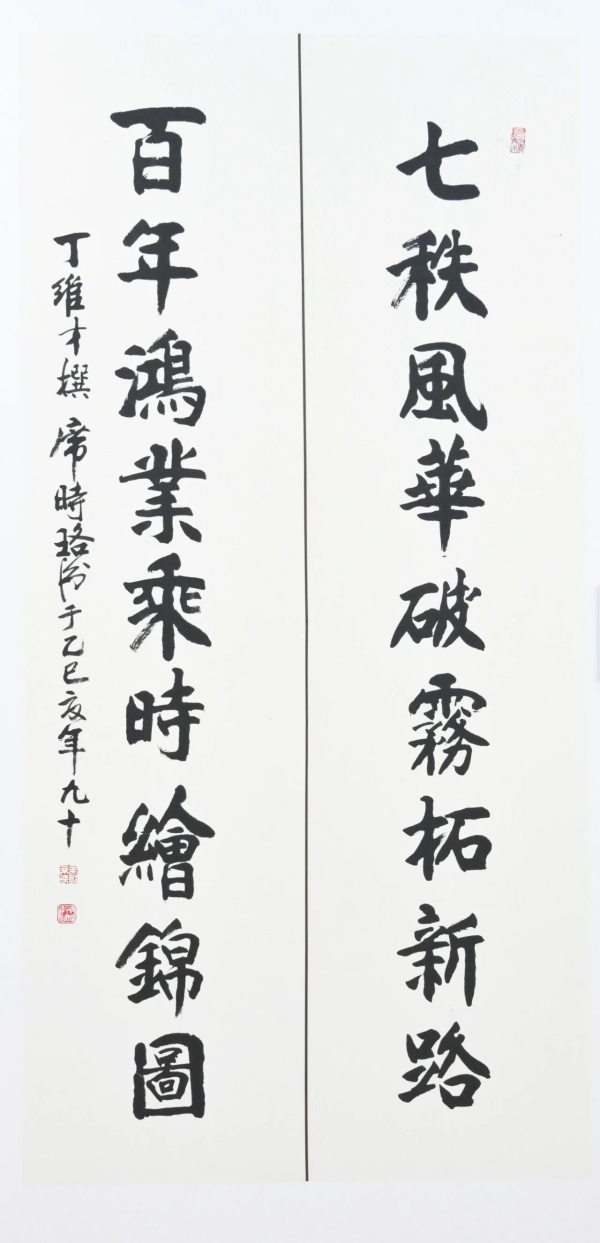 七秩風華破霧柘新路
百年鴻業乘時繪錦圖
丁維才撰 席時珞書于乙巳夏年九十